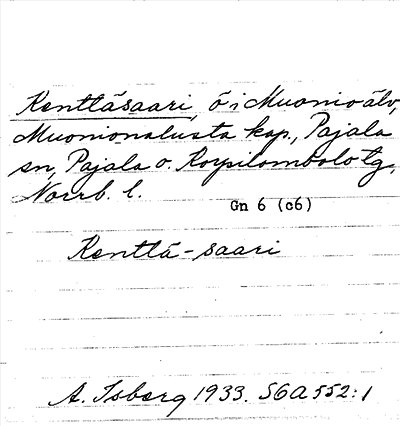 Kenttäsaari, ö i Muonio älv,
Muonionalusta kap., Pajala
sn, Pajala o. Korpilombolo tg,
Norrb. l.
Gn 6 (c6)
Kenttä-saari
A. Isberg 1933. SGA 552:1